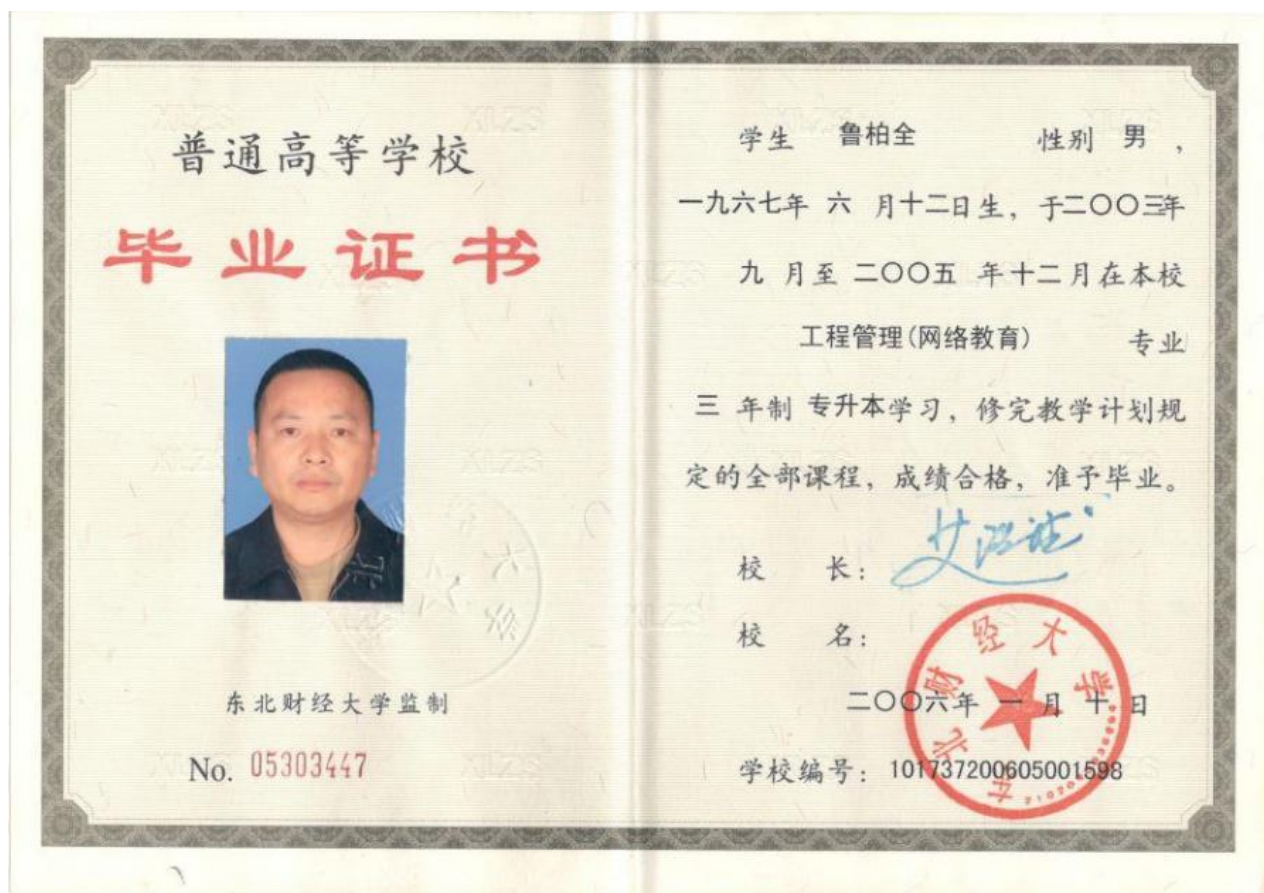 普通高等学校
毕业证书
东北财经大学监制
No. 05303447
学生 鲁柏全 性别 男，
一九六七年 六 月十二日生，于二〇〇三年
九 月至 二〇〇五 年十二月在本校
工程管理(网络教育) 专业
三 年制 专升本学习，修完教学计划规
定的全部课程，成绩合格，准予毕业。
校 长：
校 名：
东北财经大学
二〇〇六年 一 月 十 日
学校编号：101737200605001598